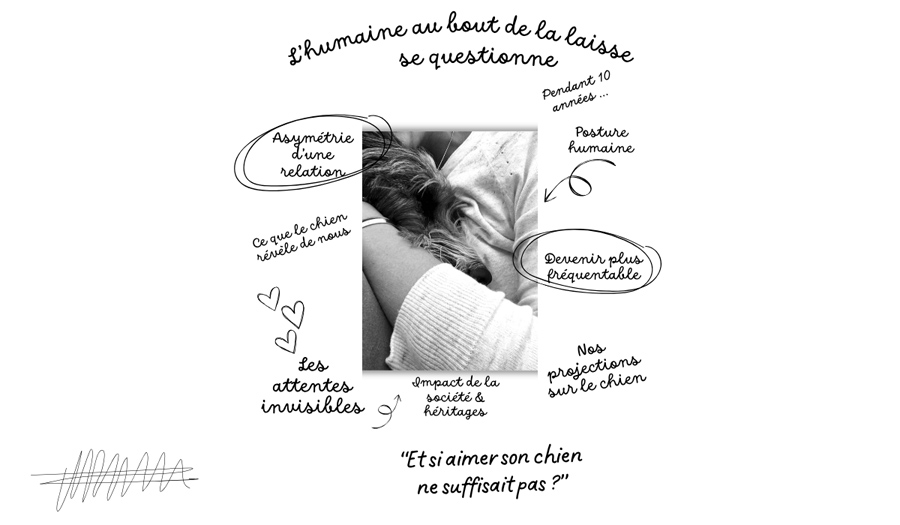 L'humaine au bout de la laisse
se questionne
Pendant 10
années ...
Asymétrie
d'une
relation
Posture
humaine
Ce que le chien
révèle de nous
Devenir plus
fréquentable
Les
attentes
invisibles
Impact de la
société &
héritages
Nos
projections
sur le chien
"Et si aimer son chien
ne suffisait pas ?"